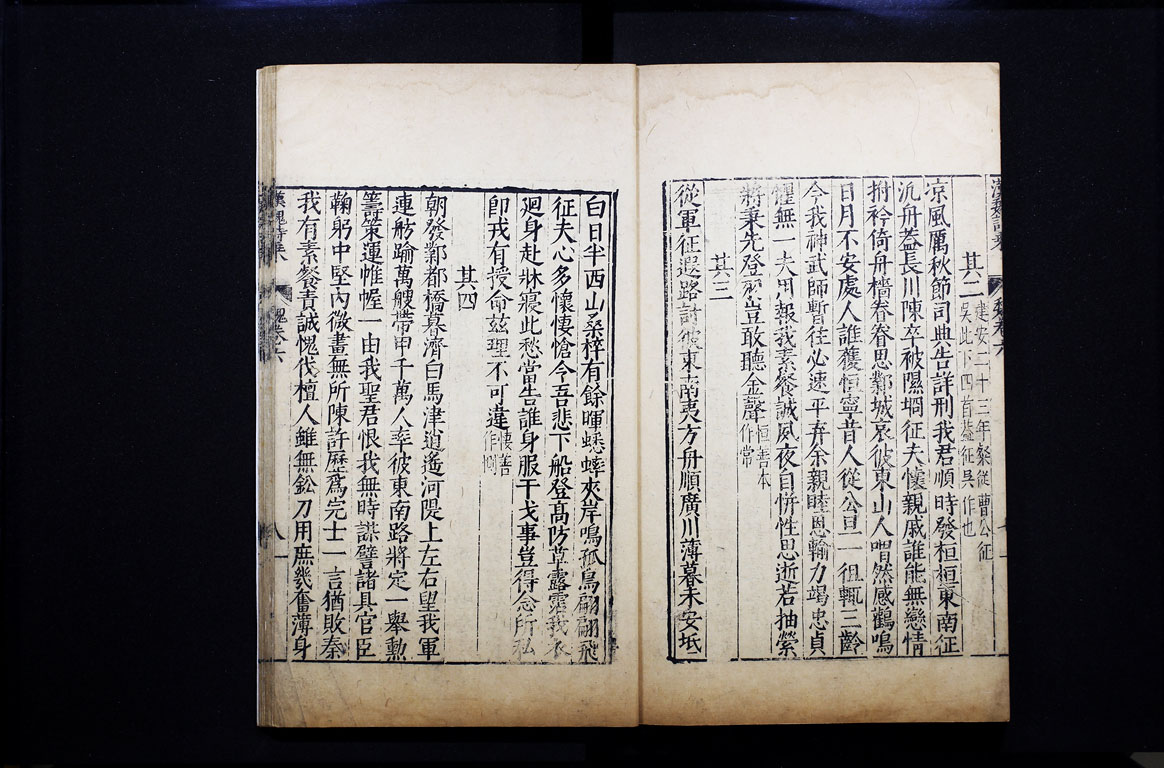 漢魏詩乗
魏卷六
七
其二 建安二十三年粲從曹公征
吳此下四首葢征吳作也
凉風厲秋節司典告詳刑我君順時發桓桓東南征
汎舟葢長川陳卒被隰坰征夫懷親戚誰能無戀情
拊衿倚舟檣眷眷思鄴城哀彼東山人喟然感鸛鳴
日月不安處人誰獲恒寧昔人從公旦一徂輒三齡
今我神武師暫往必速平弃余親睦恩輸力竭忠貞
懼無一夫用報我素餐誠夙夜自恲性思逝若抽縈
將秉先登羽豈敢聽金聲 恒善本
作常
其三
從軍征遐路討彼東南夷方舟順廣川薄暮未安坻
白日半西山桑梓有餘暉蟋蟀夾岸鳴孤鳥翩翩飛
征夫心多懷悽愴令吾悲下船登高防草露霑我衣
廻身赴牀寢此愁當告誰身服干戈事豈得念所私
即戎有授命兹理不可違 悽善
作惻
其四
朝發鄴都橋暮濟白馬津逍遙河隄上左右望我軍
連舫踰萬艘帶甲千萬人率彼東南路將定一舉勲
籌策運帷幄一由我聖君恨我無時謀譬諸具官臣
鞠躬中堅內微畫無所陳許歷為完士一言猶敗秦
我有素餐責誠愧伐檀人雖無鈆刀用庶幾奮薄身
漢魏詩乗
魏卷六
八